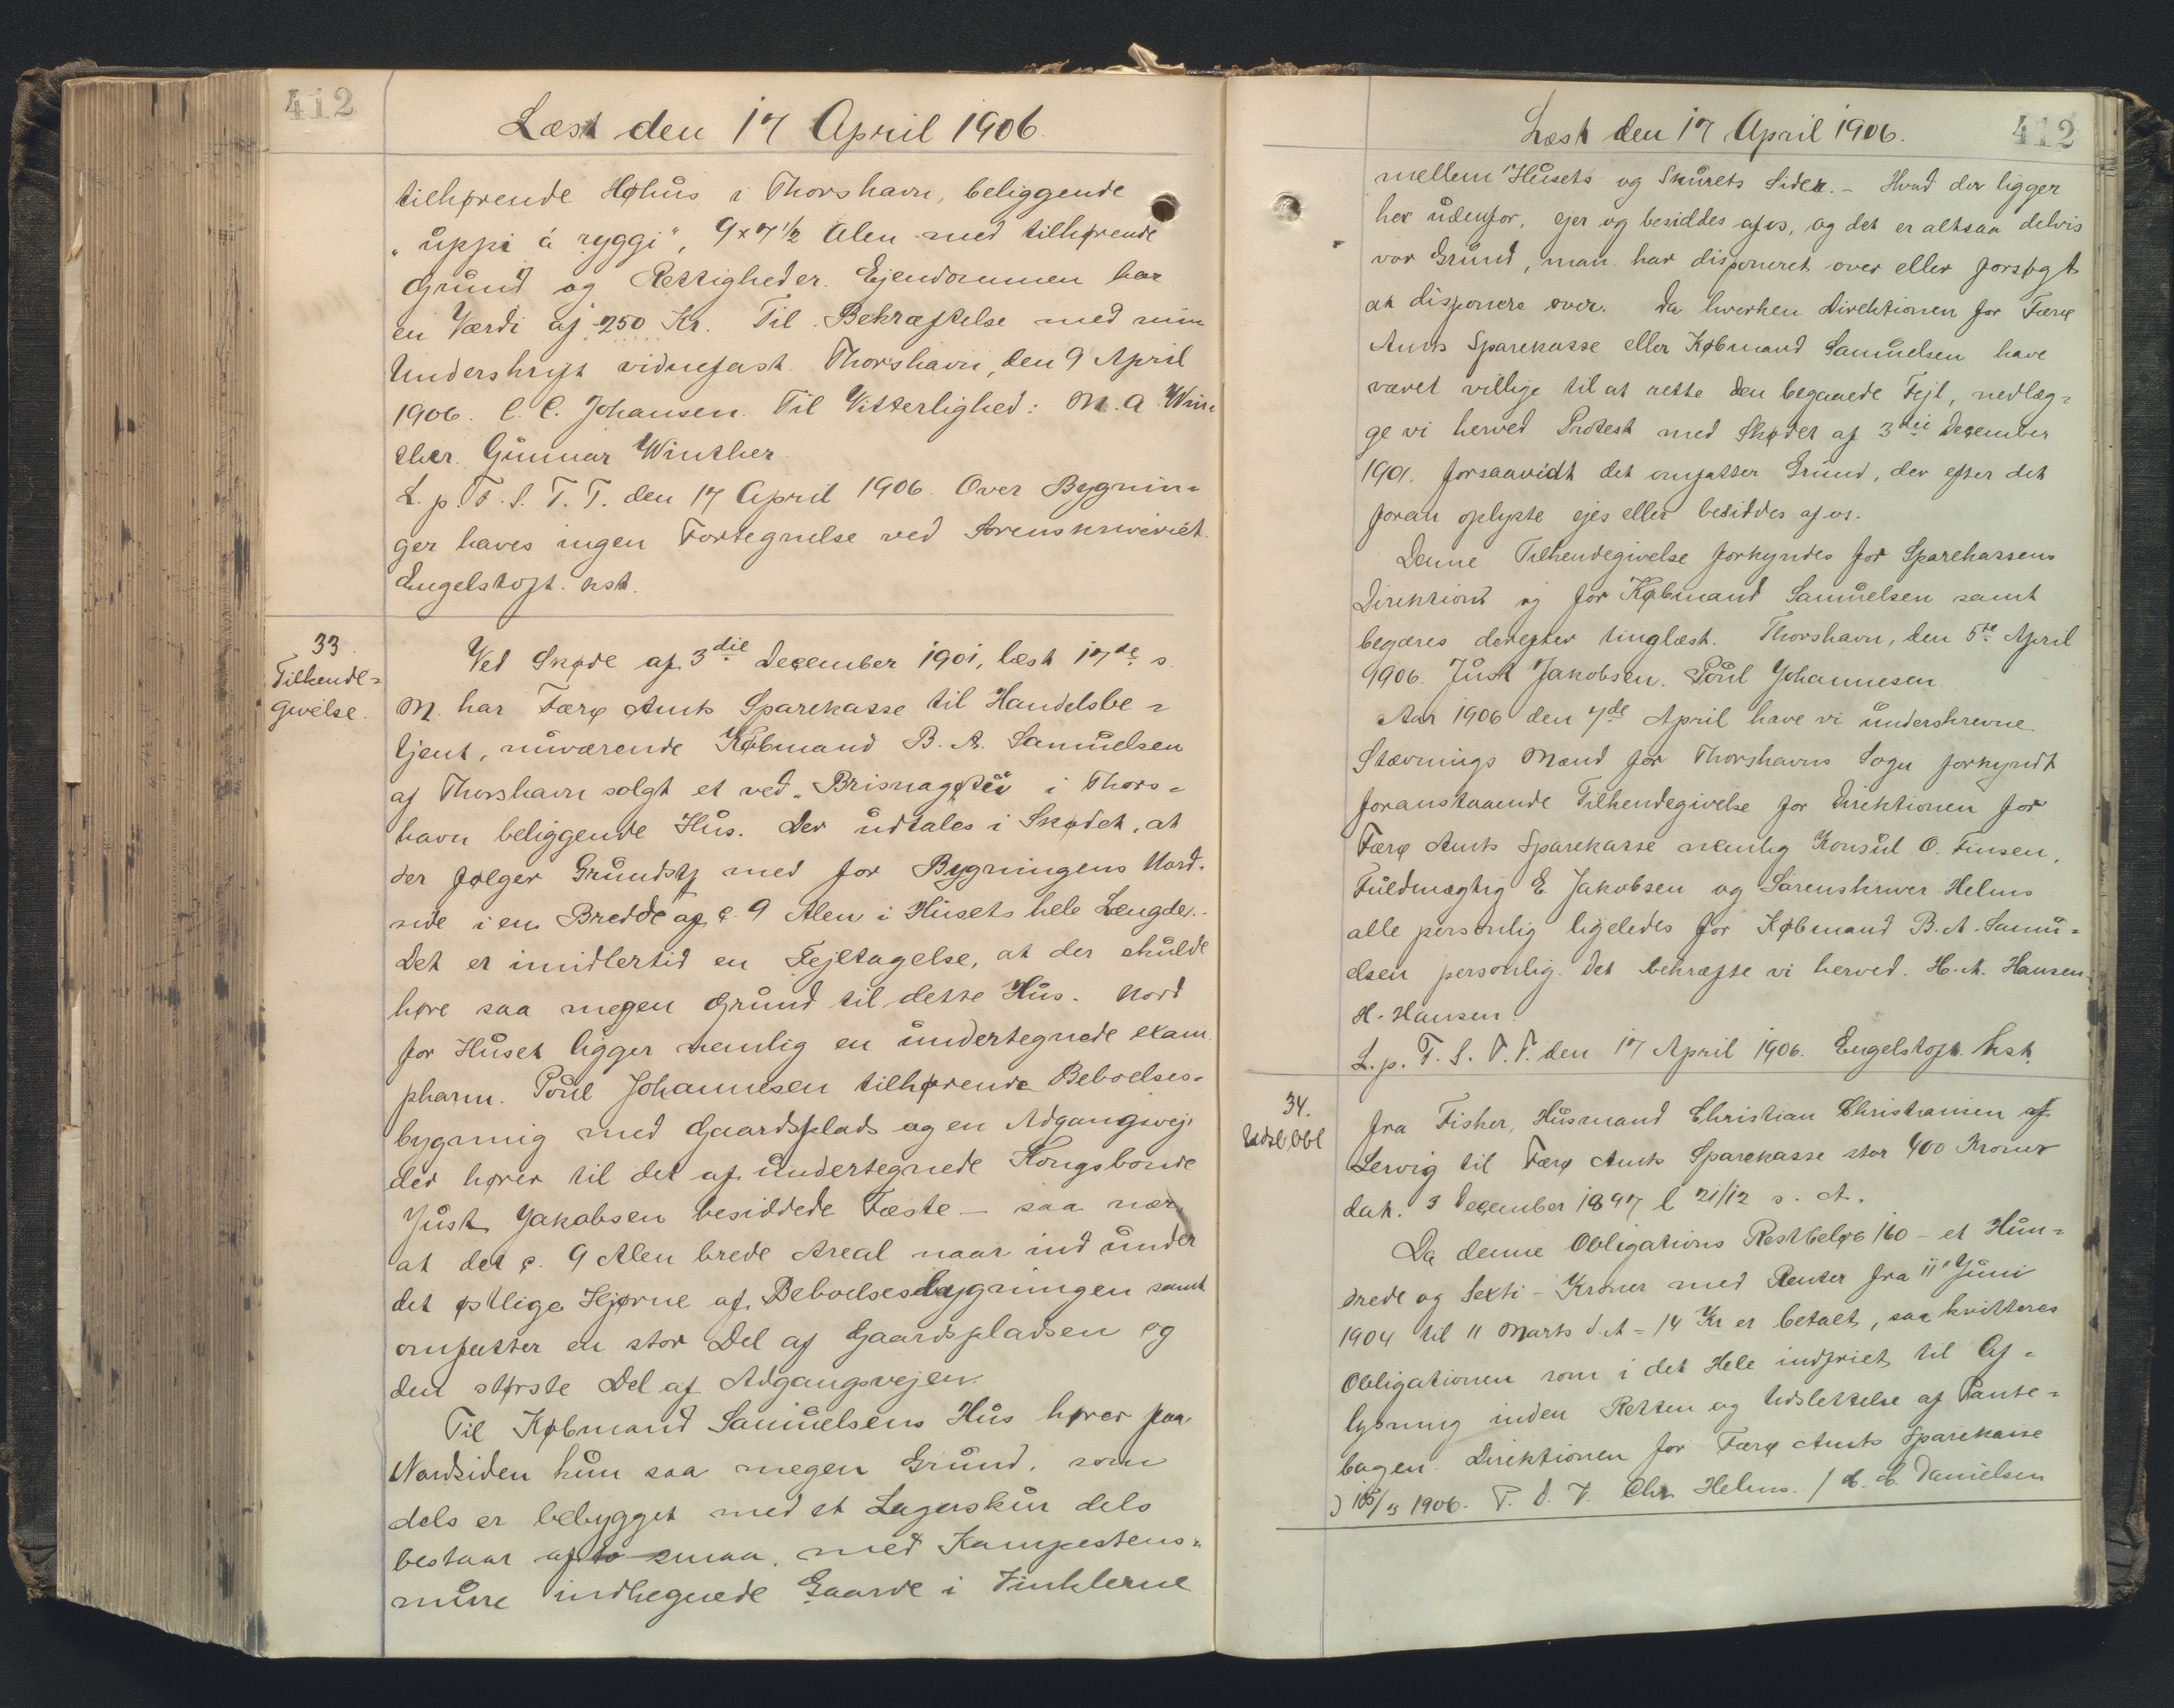 412
Læst den 17 April 1906.
tilhørende Høhus i Thorshavn, beliggende
"uppi á ryggi", 9 x 7 1/2 Alen med tilhørende
Grund og Rettigheder. Ejendommen har
en Værdi af 250 Kr. Til Bekræftelse med min
Underskrift vidnefast. Thorshavn, den 9 April
1906. C. C. Johansen. Til Vitterlighed: M. A. Win
ther. Gunnar Winther.
L. p. F. S. T. T. den 17 April 1906. Over Bygnin=
ger haves ingen Fortegnelse ved Sorenskriveriet.
Engelstoft. kst.
33.
Tilkende=
givelse.
Ved Skøde af 3die December 1901, læst 17de s.
M. har Færø Amts Sparekasse til Handelsbe=
tjent, nuværende Købmand B. A. Samuelsen
af Thorshavn solgt et ved "Brisnagøtu i Thors=
havn beliggende Hus. Der udtales i Skødet, at
der følger Grundsty med for Bygningens Nord-
side i en Bredde af c. 9 Alen i Husets hele Længde.-
Det er imidlertid en Fejltagelse, at der skulde
høre saa megen Grund til dette Hus. Nord
for Huset ligger nemlig en undertegnede exam.
pharm. Poul Johannesen tilhørende Beboelses-
bygning med Gaardsplads og en Adgangsvej,
der hører til det af undertegnede Kongsbonde
Just Jakobsen besiddede Fæste – saa nær,
at det c. 9 Alen brede Areal naar ind under
det østlige Hjørne af Beboelsesbygningen samt
omfatter en stor Del af Gaardspladsen og
den største Del af Adgangsvejen.
Til Købmand Samuelsens Hus hører paa
Nordsiden kun saa megen Grund, som
dels er bebygget med et Lagerskur dels
bestaar af to smaa, med Kampestens=
mure indhegnede Gaarde i Vinklerne
Læst den 17 April 1906.
412
mellem Husets og Skurets Sider. – Hvad der ligger
her udenfor, ejer og besiddes af os, og det er altsaa delvis
vor Grund, man har disponeret over eller forsøgt
at disponere over. Da hverken Direktionen for Færø
Amts Sparekasse eller Købmand Samuelsen have
været villige til at rette den begaaede Fejl, nedlæg=
ge vi herved Protest med Skødet af 3die December
1901. forsaavidt det omfatter Grund, der efter det
foran oplyste ejes eller besiddes af os.
Denne Tilkendegivelse forkyndes for Sparekassens
Direktion og for Købmand Samuelsen samt
begæres derefter tinglæst. Thorshavn, den 5te April
1906. Just Jakobsen. Poul Johannesen
Aar 1906 den 7de April have vi underskrevne
Stævnings Mænd for Thorshavns Sogn forkyndt
foranstaaende Tilkendegivelse for Direktionen for
Færø Amts Sparekasse nemlig Konsul O. Finsen,
Fuldmægtig E. Jakobsen og Sorenskriver Helms
alle personlig ligeledes for Købmand B. A. Samu=
elsen personlig. Det bekræfte vi herved. H. A. Hansen.
H. Hansen.
L. p. F. S. T. T. den 17 April 1906. Engelstoft. kst.
34.
Udsl. Obl
fra Fisker, Husmand Christian Christiansen af
Lervig til Færø Amts Sparekasse stor 400 Kroner
dat. 3 December 1897 l 21/12 s. A.
Da denne Obligations Restbeløb 160 – et Hun=
drede og Sexti – Kroner med Renter fra 11' Juni
1904 til 11 Marts d. A = 14 Kr er betalt, saa kvitteres
Obligationen som i det Hele indfriet til Af=
lysning inden Retten og Udslettelse af Pante=
bogen. Direktionen for Færø Amts Sparekasse
1906. P. D. V. Chr Helms. / Danielsen